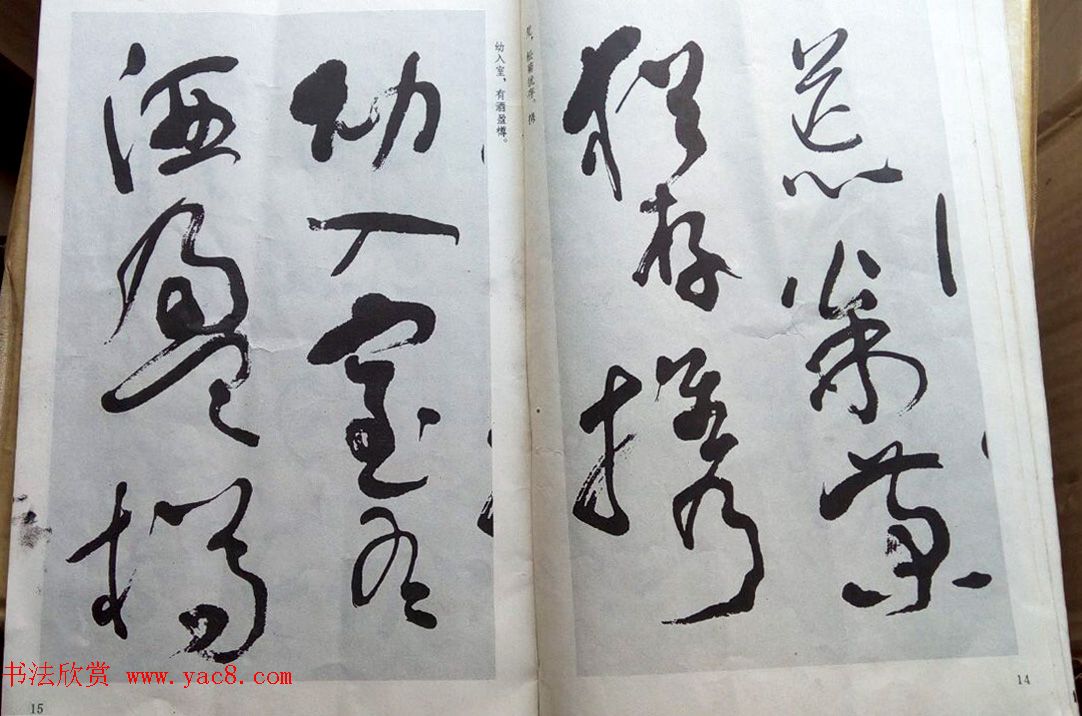 荒松菊
猶存攜
幼入室有
酒盈樽
荒，松菊犹存。携
幼入室，有酒盈樽。
14
15
书法欣赏 www.yac8.com